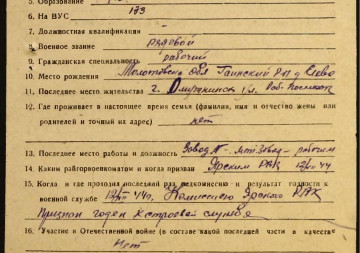 5. Образование
6. На ВУС 133
7. Должностная квалификация
8. Военное звание рядовой
9. Гражданская специальность рабочий
10. Место рождения Молотовская обл Гаинский р-н д
11. Последнее место жительства г.
12. Где проживает в настоящее время семья (фамилия, имя и отчество жены или
родителей и точный их адрес) нет
13. Последнее место работы и должность Завод рабочим
14. Каким райгорвоенкоматом и когда призван Ярским РВК 44
15. Когда и где проходил последний раз медкомиссию и результат годности к
военной службе 44г. Комиссией Ярского РВК
Признан годен к строевой службе
16. Участие в Отечественной войне (в составе какой последней части в качестве
Нет